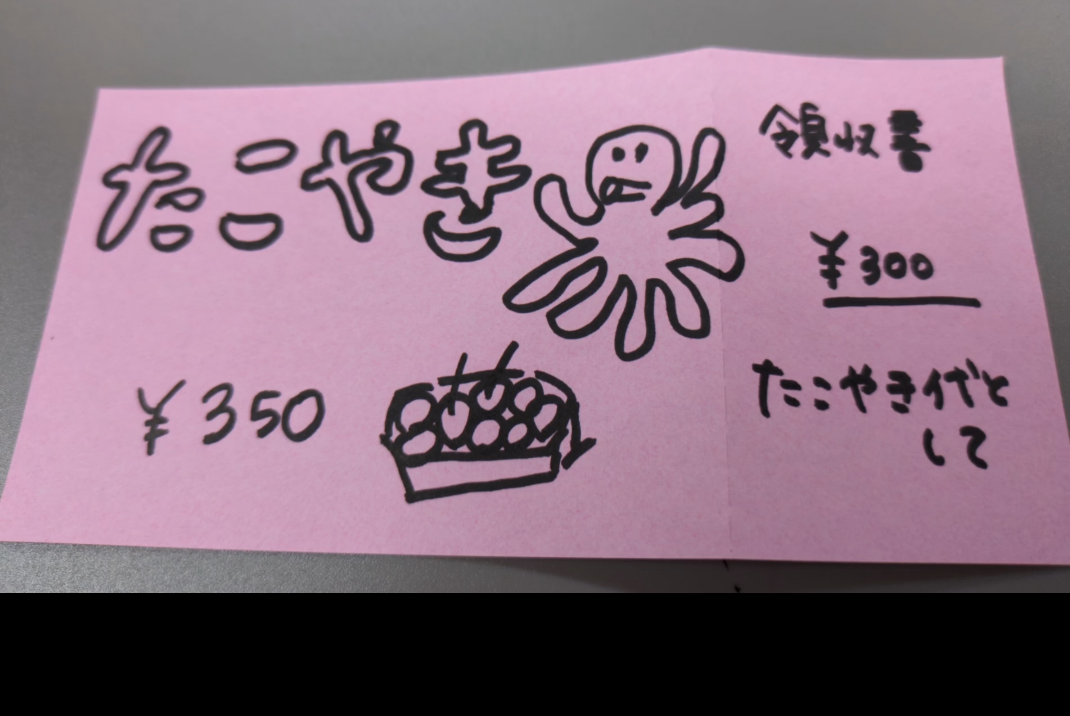 たこやき
¥350
領収書
¥300
たこやき代と
して